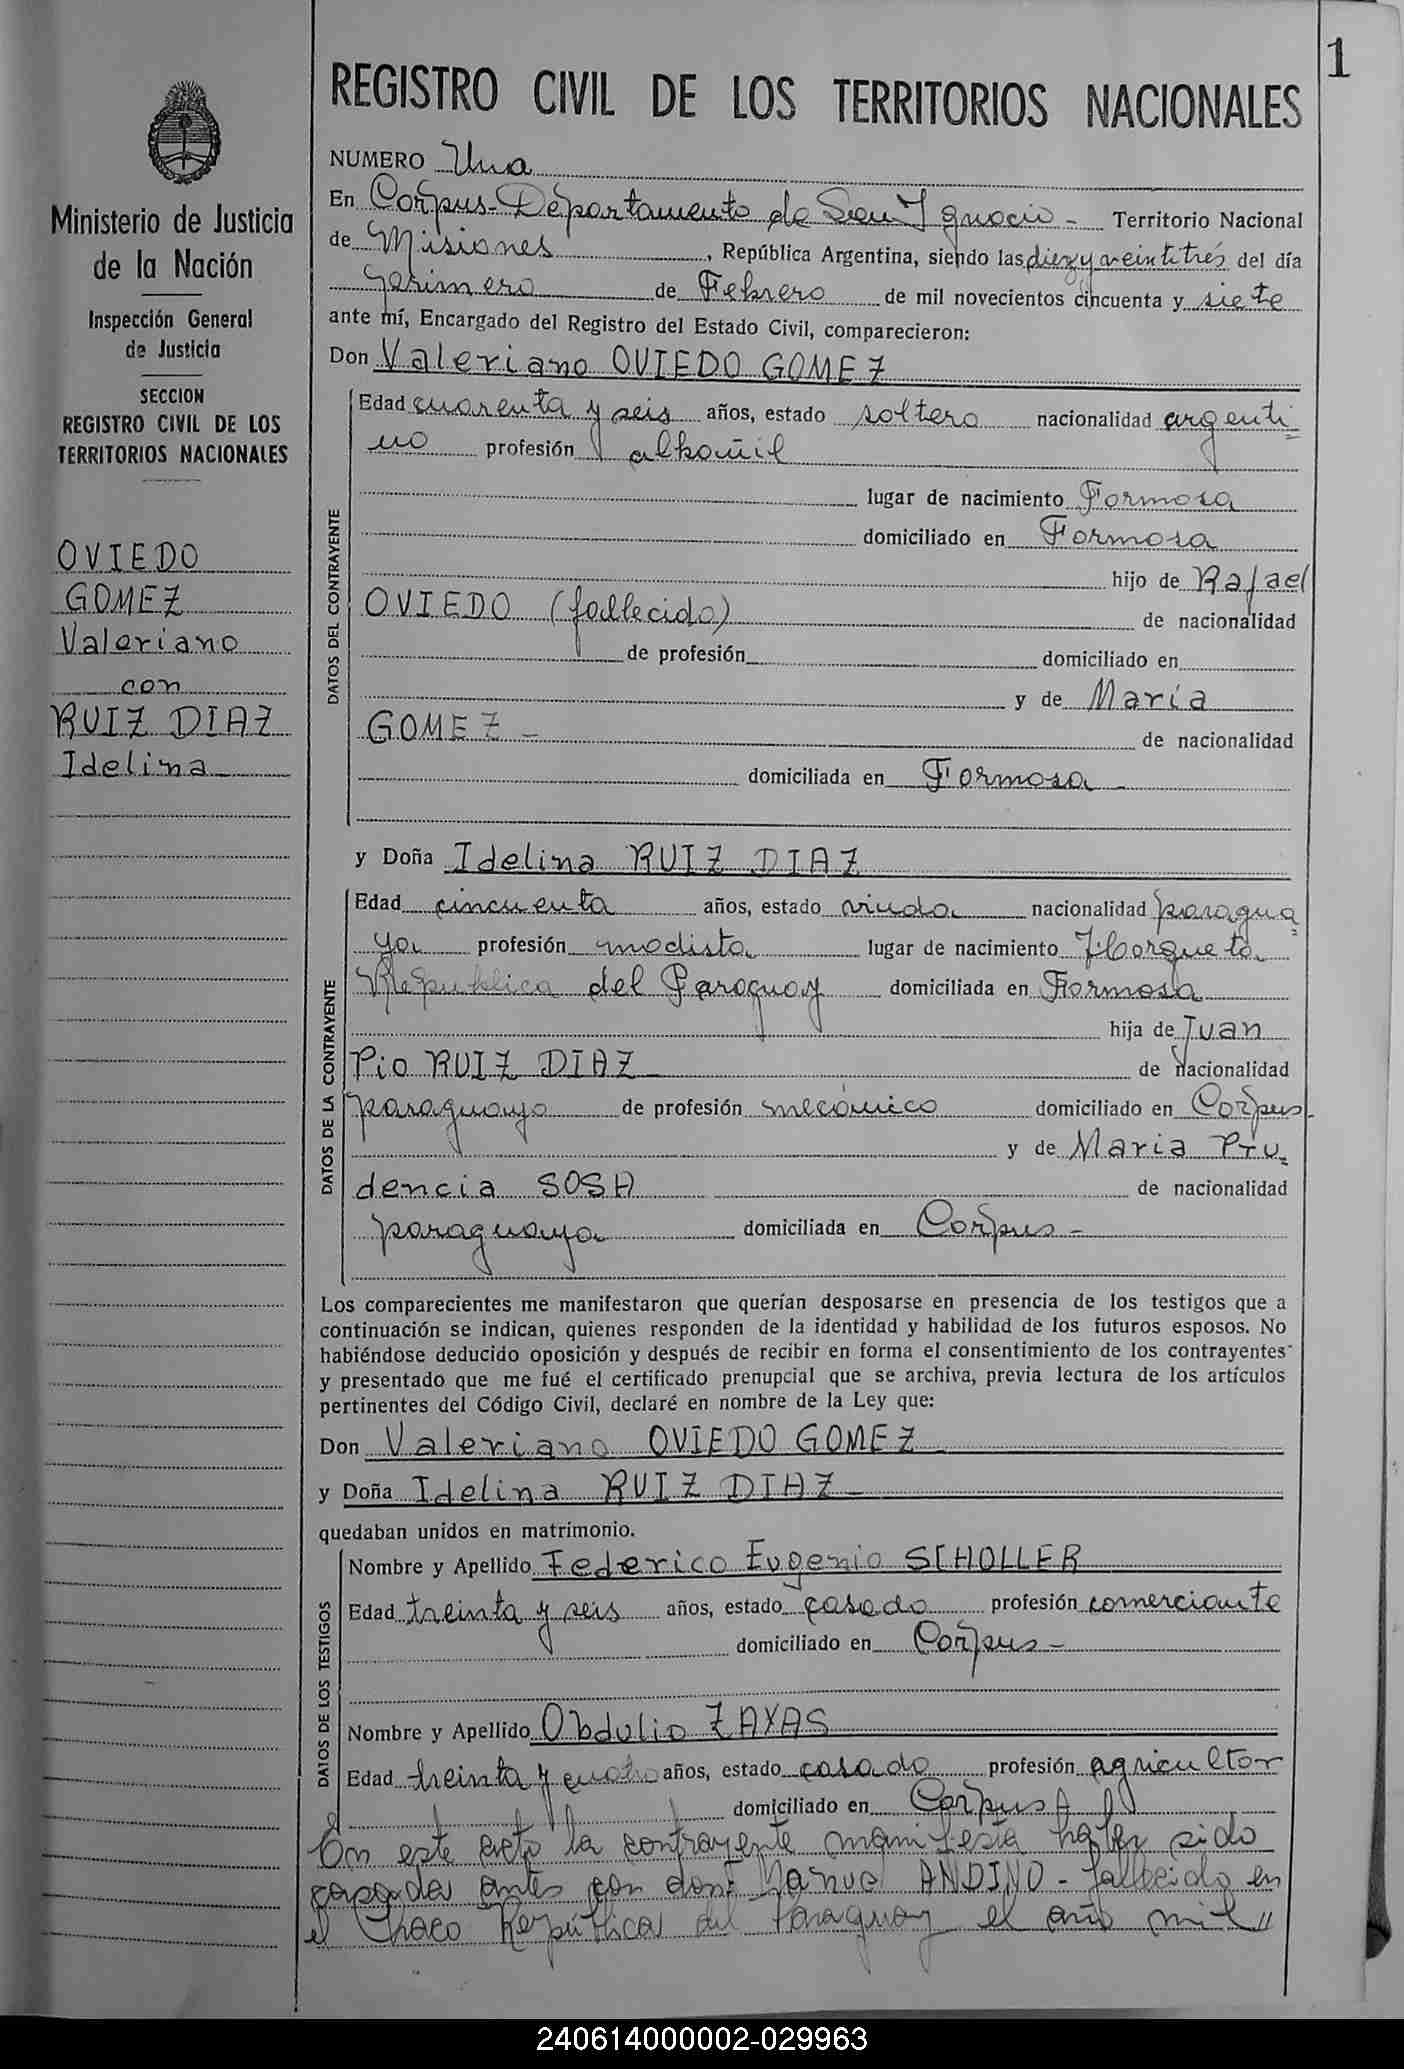 1
REGISTRO CIVIL DE LOS TERRITORIOS NACIONALES
Ministerio de Justicia
de la Nación
Inspección General
de Justicia
SECCION
REGISTRO CIVIL DE LOS
TERRITORIOS NACIONALES
OVIEDO
GOMEZ
Valeriano
con
RUIZ DIAZ
Idelina
NUMERO Una
En Corpus-Departamento de San Ignacio - Territorio Nacional
de Misiones, República Argentina, siendo las diez y veintitrés del día
primero de Febrero de mil novecientos cincuenta y siete
ante mí, Encargado del Registro del Estado Civil, comparecieron:
Don Valeriano OVIEDO GOMEZ
DATOS DEL CONTRAYENTE
Edad cuarenta y seis años, estado soltero nacionalidad argenti=
no profesión albañil
lugar de nacimiento Formosa
domiciliado en Formosa
hijo de Rafael
OVIEDO (fallecido) de nacionalidad
de profesión domiciliado en
y de María
GOMEZ - de nacionalidad
domiciliada en Formosa
y Doña Idelina RUIZ DIAZ
DATOS DE LA CONTRAYENTE
Edad cincuenta años, estado viuda nacionalidad paragua=
ya profesión modista lugar de nacimiento Horqueta
República del Paraguay domiciliada en Formosa
hija de Juan
Pio RUIZ DIAZ de nacionalidad
paraguayo de profesión mecánico domiciliado en Corpus
y de Maria Pru=
dencia SOSA de nacionalidad
paraguaya domiciliada en Corpus -
Los comparecientes me manifestaron que querían desposarse en presencia de los testigos que a
continuación se indican, quienes responden de la identidad y habilidad de los futuros esposos. No
habiéndose deducido oposición y después de recibir en forma el consentimiento de los contrayentes
y presentado que me fué el certificado prenupcial que se archiva, previa lectura de los artículos
pertinentes del Código Civil, declaré en nombre de la Ley que:
Don Valeriano OVIEDO GOMEZ
y Doña Idelina RUIZ DIAZ
quedaban unidos en matrimonio.
DATOS DE LOS TESTIGOS
Nombre y Apellido Federico Eugenio SCHOLLER
Edad treinta y seis años, estado casado profesión comerciante
domiciliado en Corpus -
Nombre y Apellido Obdulio ZAYAS
Edad treinta y cuatro años, estado casado profesión agricultor
domiciliado en Corpus
En este acto la contrayente manifiesta haber sido
casada antes con don: Manuel ANDINO - fallecido en
el Chaco República del Paraguay el año mil //
240614000002-029963